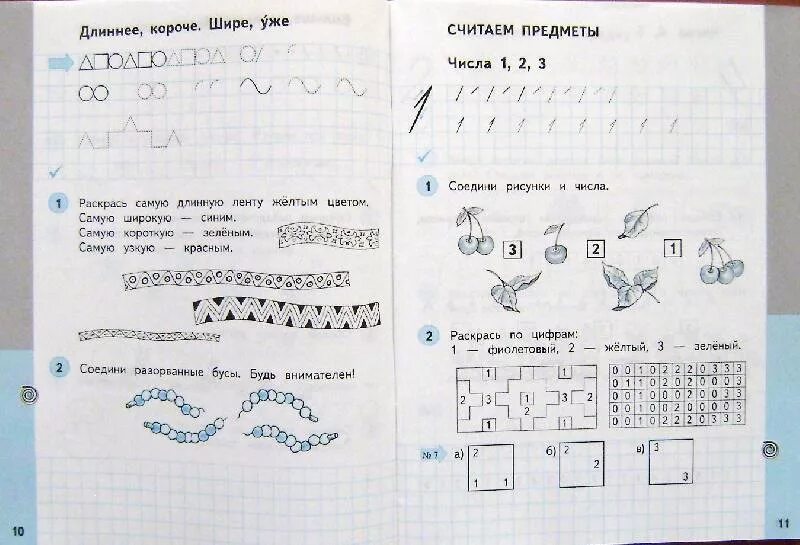 Длиннее, короче. Шире, у́же
1 Раскрась самую длинную ленту жёлтым цветом.
Самую широкую — синим.
Самую короткую — зелёным.
Самую узкую — красным.
2 Соедини разорванные бусы. Будь внимателен!
10
СЧИТАЕМ ПРЕДМЕТЫ
Числа 1, 2, 3
1
1 Соедини рисунки и числа.
3 2 1
2 Раскрась по цифрам:
1 — фиолетовый, 2 — жёлтый, 3 — зелёный.
1 1
2 3 1 3 2
2
1 1
0 0 1 0 2 2 2 0 3 3 3
0 1 1 0 2 0 2 0 0 0 3
0 0 1 0 0 0 2 0 3 3 3
0 0 1 0 0 2 0 0 0 0 3
0 0 1 0 2 2 2 0 3 3 3
№ 7 а) 2 1 1 б) 2 2 в) 3 3
11